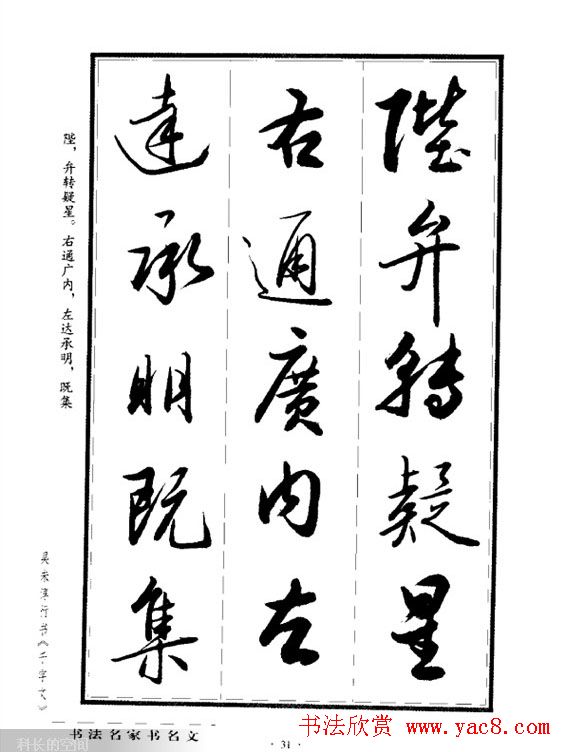 陛弁轉疑星
右通廣内左
達承明既集
陛，弁转疑星。右通广内，左达承明，既集
吴未淳行书《千字文》
书法名家书名文
· 31 ·
科长的空间
书法欣赏 www.yac8.com